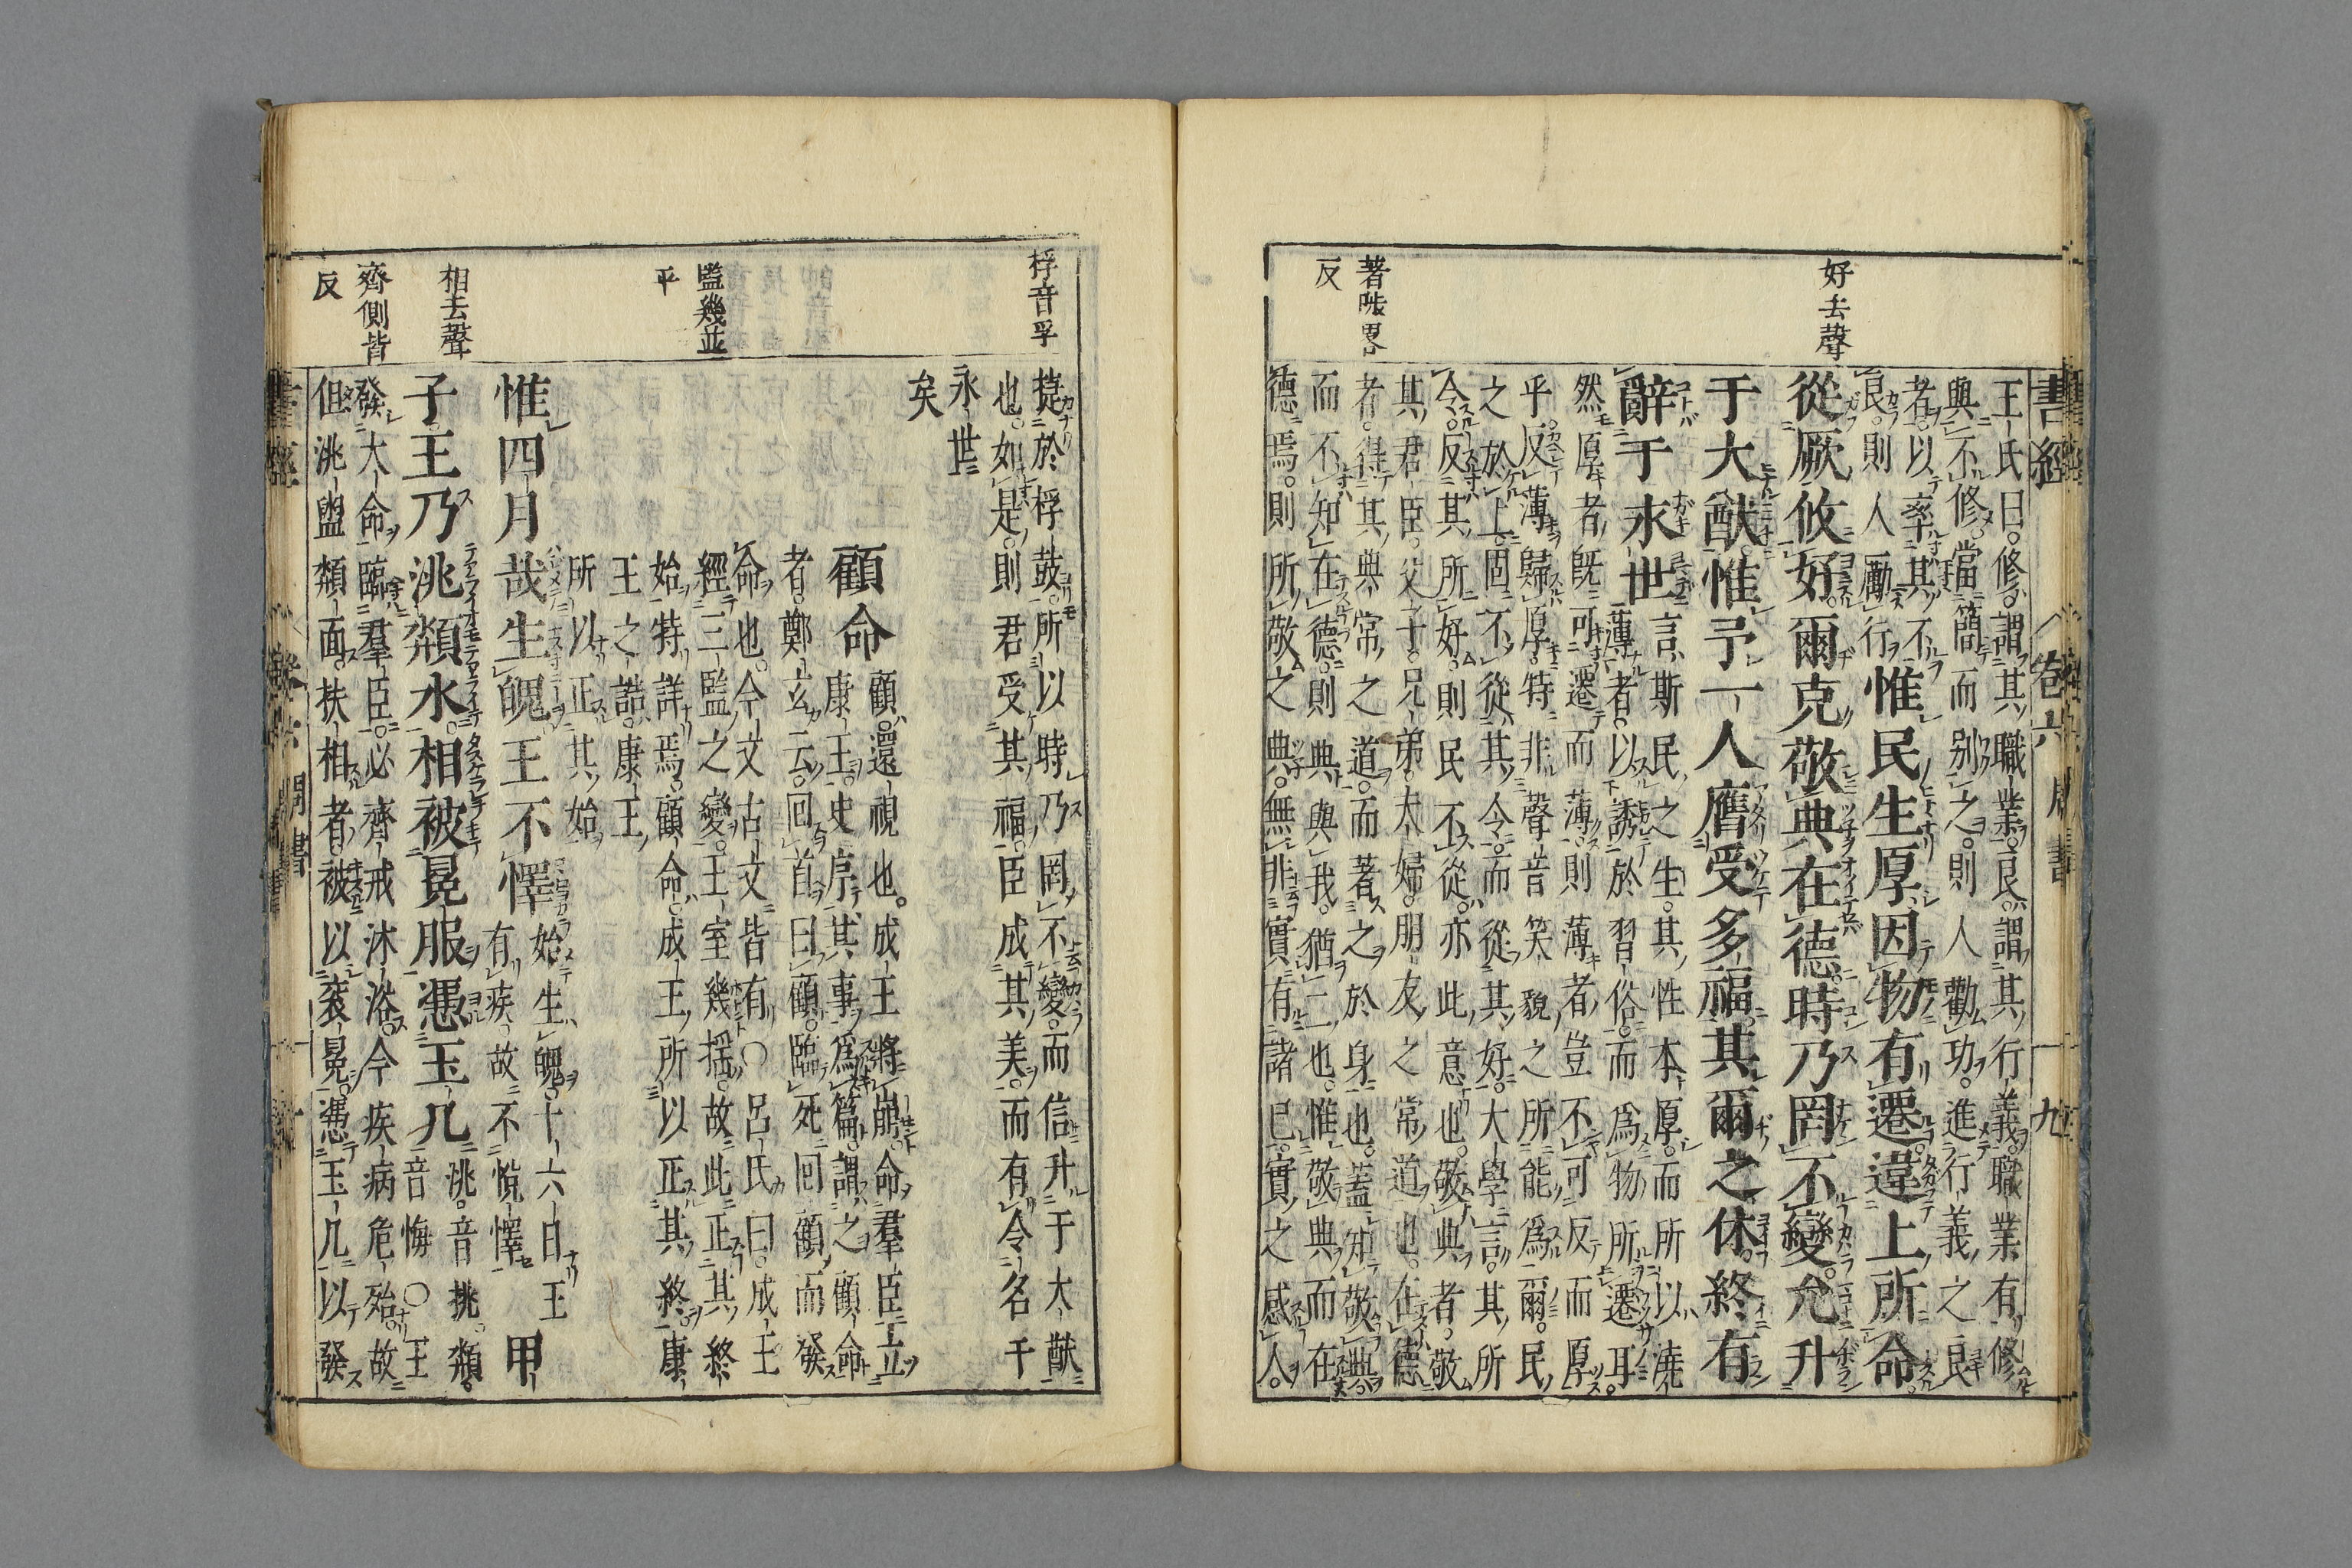 好去聲
著陟畧
反
書經 卷六 周書 十九
王氏曰。修謂其職業。良謂其行義。職業有修
與不修。當簡而別之。則人勸功。進行義之良
者。以率其不
良。則人勵行。惟民生厚。因物有遷。違上所命。
從厥攸好。爾克敬典在德。時乃罔不變。允升
于大猷。惟予一人膺受多福。其爾之休。終有
辭于永世
言斯民之生。其性本厚。而所以澆
薄者。以誘於習俗。而爲物所遷耳。
然厚者旣可遷而薄。則薄者豈不可反而厚
乎。反薄歸厚。特非聲音笑貌之所能爲爾。民
之於上。固不從其令。而從其好。大學言。其所
令。反其所好。則民不從。亦此意也。敬典者。敬
其君臣。父子。兄弟。夫婦。朋友。之常道也。在德
者。得其典常之道。而著之於身也。蓋知敬典
而不知在德。則典與我。猶二也。惟敬典而在
德焉。則所敬之典。無非實有諸己。實之感人。
桴音孚
監幾並
平
相去聲
齊側皆
反
捷於桴鼓。所以時乃罔不變。而信升于大猷
也。如是。則君受其福。臣成其美。而有令名于
永世
矣
顧命
顧。還視也。成王將崩。命群臣立
康王。史序其事爲篇。謂之顧命
者。鄭玄云。回首曰顧。臨死回顧。而發
命也。今文古文皆有〇呂氏曰。成王
經三監之變。王室幾搖。故此正其終
始特詳焉。顧命。成王所以正其終。康
王之誥。康王
所以正其始
惟四月哉生魄王不懌
始生魄。十六日王
有疾。故不悅懌
甲
子。王乃洮頮水。相被冕服憑玉几
洮。音挑。頮。
音悔〇王
發大命。臨羣臣。必齊戒沐浴。今疾病危殆。故
但洮盥頮面。扶相者。被以袞冕。憑玉几以發